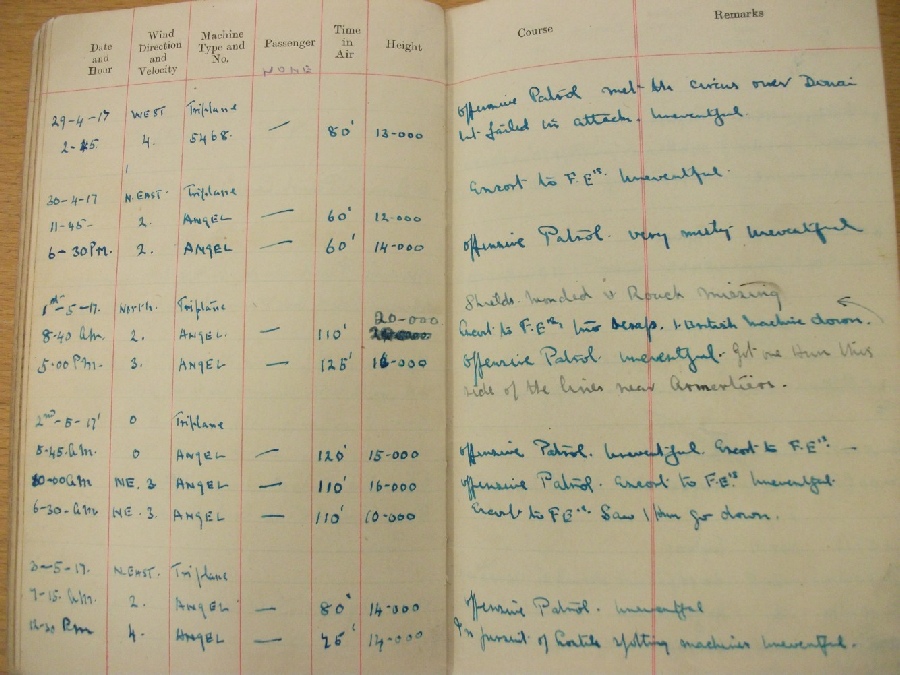 Date and Hour Wind Direction and Velocity Machine Type and No. Passenger Time in Air Height Course Remarks
NONE
29-4-17 WEST Triplane Offensive Patrol met the circus over Douai
2-45 4. 5468. — 80' 13-000 but failed in attack. Uneventful.
30-4-17 N.EAST. Triplane Escort to F.E's. Uneventful.
11-45- 2. ANGEL — 60' 12-000
6-30 P.M. 2. ANGEL — 60' 14-000 Offensive Patrol. Very misty Uneventful
1st-5-17. North. Triplane Shields. wounded & Roach missing
20-000
8-40 A.m. 2. ANGEL. — 110' Escort to F.E's, two scraps. 1 British machine down.
5-00 P.m. 3. ANGEL — 125' 16-000 Offensive Patrol. Uneventful. Got one Hun this
side of the lines near Armentiers.
2nd-5-17' 0 Triplane
5-45. A.m. 0 ANGEL — 120' 15-000 Offensive Patrol. Uneventful. Escort to F.E's. —
10-00 A.m NE. 3 ANGEL — 110' 16-000 Offensive Patrol. Escort to F.E's. Uneventful.
6-30- NE. 3. ANGEL — 110' 10-000 Escort to F.E's. Saw 1 Hun go down.
3-5-17. N.EAST. Triplane
7-15 A.m. 2. ANGEL — 80' 14-000 Offensive Patrol. Uneventful
P.m 4. ANGEL — 14-000 In pursuit of hostile spotting machines uneventful.